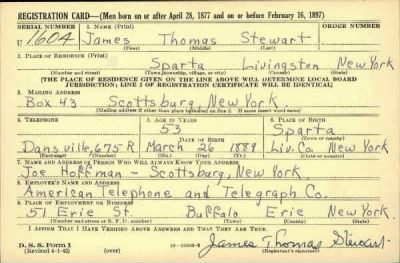 REGISTRATION CARD—(Men born on or after April 28, 1877 and on or before February 16, 1897)
SERIAL NUMBER 1. NAME (Print) ORDER NUMBER
U 1604 James Thomas Stewart
(First) (Middle) (Last)
2. PLACE OF RESIDENCE (Print)
Sparta Livingston New York
(Number and street) (Town, township, village, or city) (County) (State)
[THE PLACE OF RESIDENCE GIVEN ON THE LINE ABOVE WILL DETERMINE LOCAL BOARD
JURISDICTION; LINE 2 OF REGISTRATION CERTIFICATE WILL BE IDENTICAL]
3. MAILING ADDRESS
Box 43 Scottsburg, New York
[Mailing address if other than place indicated on line 2. If same insert word same]
4. TELEPHONE 5. AGE IN YEARS 6. PLACE OF BIRTH
53 Sparta
DATE OF BIRTH (Town or county)
Dansville, 675R March 26 1889 Liv. Co. New York
(Exchange) (Number) (Mo.) (Day) (Yr.) (State or country)
7. NAME AND ADDRESS OF PERSON WHO WILL ALWAYS KNOW YOUR ADDRESS
Joe Hoffman - Scottsburg, New York
8. EMPLOYER'S NAME AND ADDRESS
American Telephone and Telegraph Co.
9. PLACE OF EMPLOYMENT OR BUSINESS
51 Erie St. Buffalo Erie New York
(Number and street or R. F. D. number) (Town) (County) (State)
I AFFIRM THAT I HAVE VERIFIED ABOVE ANSWERS AND THAT THEY ARE TRUE.
D. S. S. Form 1
(Revised 4-1-42) (over) James Thomas Stewart
(Registrant's signature)